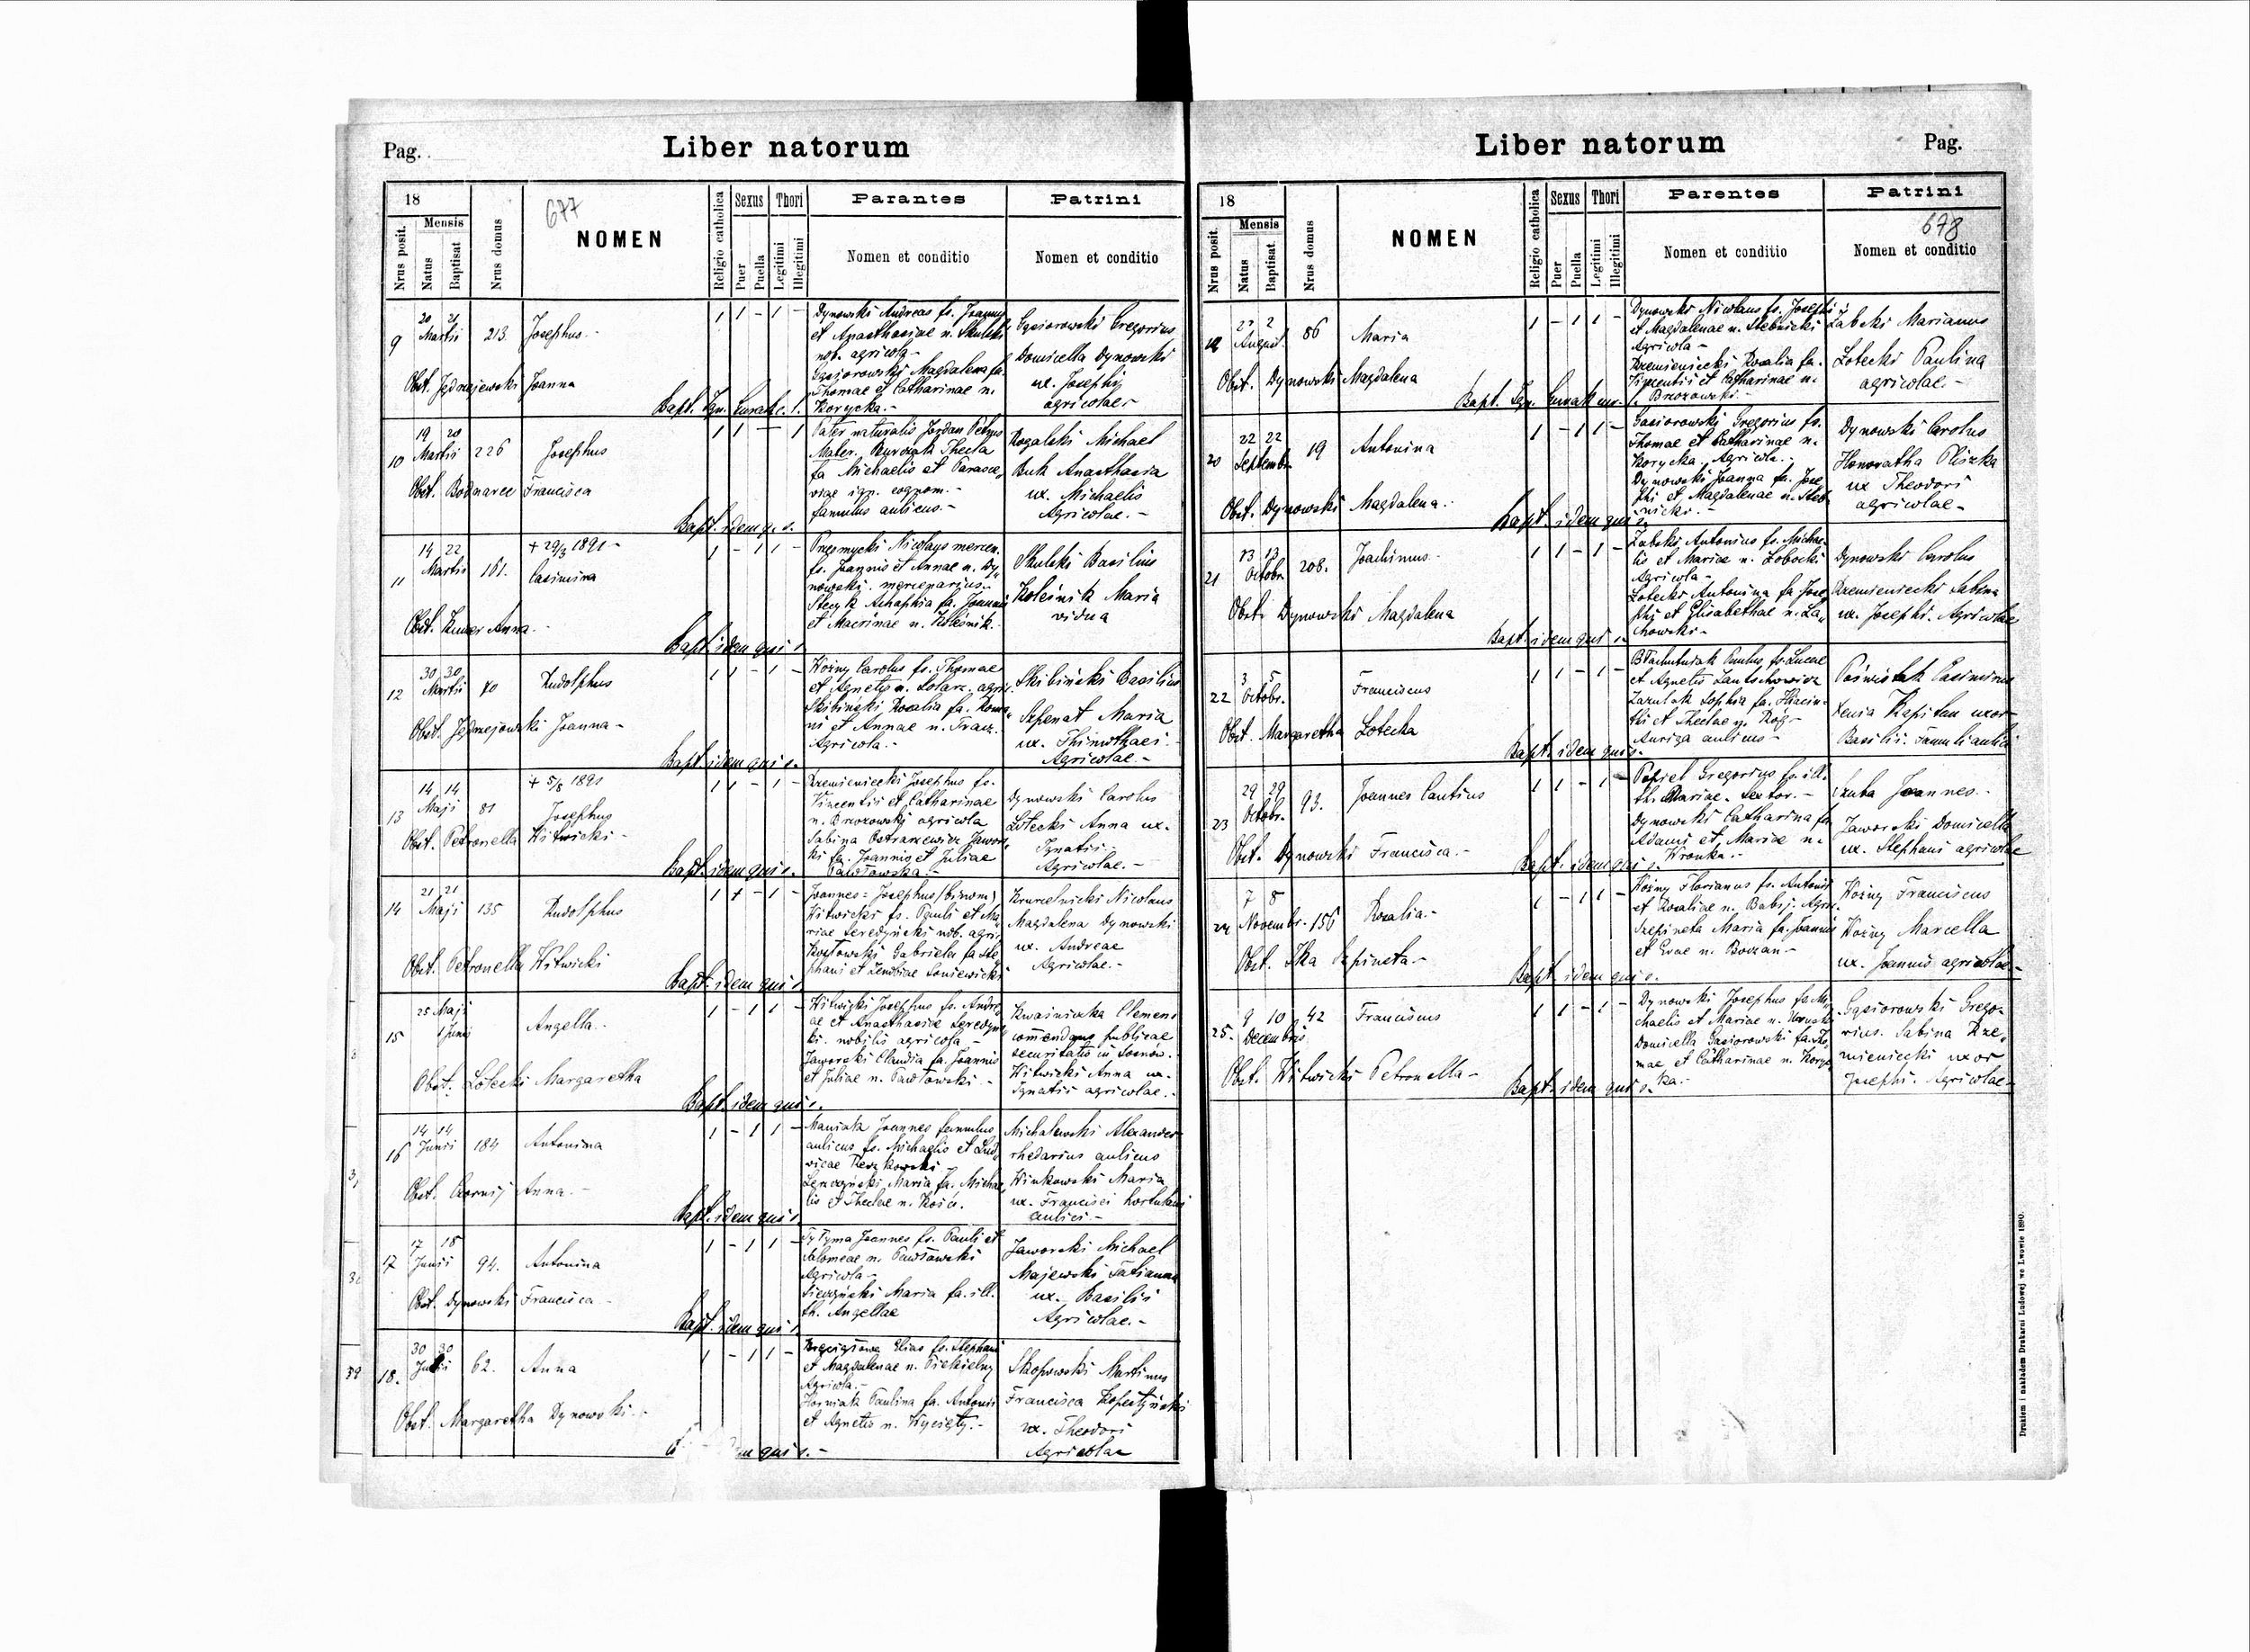 Pag.
Liber natorum
18
677
Mensis
Nrus posit.
Natus
Baptisat
Nrus domus
NOMEN
Religio catholica
Sexus
Puer
Puella
Thori
Legitimi
Illegitimi
Parantes
Nomen et conditio
Patrini
Nomen et conditio
9
20 21
Martii
213.
Josephus.
1 1 - 1 -
Dynowski Andreas fs. Joannis
et Anasthasiae n. Skulski
nob. agricola -
Gąsiorowski Magdalena fa.
Thomae et Catharinae n.
Korycka. -
Gąsiorowski Gregorius
Domicella Dynowski
ux. Josephi
agricolae
Obst. Jędrzejewski Joanna
Bapt. Ign.
10
19 20
Martii
226
Josephus
1 1 - 1
Pater naturalis Jordan Petrus
Mater. Thecla
fa Michaelis et Parasce„
viae ign. cognom. -
famulus aulicus. -
Rogalski Michael
Buk Anasthasia
ux. Michaelis
Agricolae. -
Obst. Bodnarec Francisca
Bapt. idem q. s.
11
14 22
Martii
161.
+ 29/3 1891 -
Casimira
1 - 1 1 -
Przesmycki Nicolaus mercen.
fs. Joannis et Annae n. Dy„
nowski. mercenarius. -
Stecyk fa. Joannis
et Macrinae n. Koleśnik.
Skulski Basilius
Koleśnik Maria
vidua
Obst. Anna. -
Bapt. idem qui s.
12
30 30
Martii
70
Rudolphus
1 1 - 1 -
Woźny Carolus fs. Thomae
et Agnetis n. agri.
Skibiński Rosalia fa. Roma„
ni et Annae n. Tracz.
Agricola. -
Skibiński Basilius
Szpenat Maria
ux. Thimothaei.
Agricolae. -
Obst. Jędrzejowski Joanna -
Bapt. idem qui s.
13
14 14
Maji
81
+ 5/8 1891
Josephus
1 1 - 1 -
Dzemieniecki Josephus fs.
Vincentii et Catharinae
n. Brzozowski agricola
Sabina Ostrarzewicz Jawors
ki fa. Joannis et Juliae
Pawłowska. -
Dynowski Carolus
Łotecki Anna ux.
Ignatii.
Agricolae. -
Obst. Petronella Witwicki -
Bapt. idem qui s.
14
21 21
Maji
135
Rudolphus
1 + - 1 -
Joannes = Josephus (binom)
Witwicki fs. Pauli et Ma„
riae Seredyński nob. agri.
Kozłowski Gabriela fa Ste„
phani et Zenobiae Soniewicki
Nicolaus
Magdalena Dynowski
ux. Andreae
Agricolae. -
Obst. Petronella Witwicki
Bapt. idem qui s.
15
25 Maji
1 Junii
Angella.
1 - 1 1 -
Witwicki Josephus fs. Andre
ae et Anasthasiae Seredyńs
ki. nobilis agricola -
Jaworski Claudia fa. Joannis
et Juliae n. Pawłowski. -
Kwaśniczka Clemens
comendans publicae
securitatis in
Witwicki Anna ux.
Ignatii agricolae. -
Obst. Łotecki Margaretha
Bapt. idem qui s.
16
14 14
Junii
184
Antonina
1 - 1 1 -
Maniak Joannes famulus
aulicus fs. Michaelis et Lud„
vicae
Maria fa. Michae„
lis et Theclae n.
Michalewski Alexander
rhedarius aulicus
Winkowski Maria
ux. Francisci hortulani
aulici -
Obst. Czornij Anna. -
Bapt. idem qui s.
17
17 18
Junii
94.
Antonina
1 - 1 1 -
Tytyma Joannes fs. Pauli et
Salomeae n. Pawłowski
Agricola -
Maria fa. ill.
th. Angellae
Jaworski Michael
Majewski Tatianna
ux. Basilii
Agricolae. -
Obst. Dynowski Francisca -
Bapt. idem qui s.
18.
30 30
62.
Anna
1 - 1 1 -
Elias fs. Stephani
et Magdalenae n.
Agricola. -
Horniak Paulina fa. Antonii
et Agnetis n.
Skopowski Martinus
Francisca Kopestyński
ux. Theodori
Agricolae
Obst. Margaretha Dynowski. -
qui s. -
Liber natorum
Pag.
18
Mensis
Nrus posit.
Natus
Baptisat
Nrus domus
NOMEN
Religio catholica
Sexus
Puer
Puella
Thori
Legitimi
Illegitimi
Parentes
Nomen et conditio
Patrini
678
Nomen et conditio
86
Maria
1 - 1 1 -
Dynowski Nicolaus fs. Josephi
et Magdalenae n. Stebnicki
Agricola -
Dzemieniecki Rosalia fa.
Vincentii et Catharinae n.
Brzozowski. -
Żabski Marianus
Łotecki Paulina
agricolae. -
Obst. Dynowski Magdalena
Bapt. Ign.
20
22 22
Septembr.
19
Antonina
1 - 1 1 -
Gąsiorowski Gregorius fs.
Thomae et Catharinae n.
Korycka, Agricola. -
Dynowski Joanna fa. Jose
phi et Magdalenae n. Steb
nicki. -
Dynowski Carolus
Honoratha Pliszka
ux Theodori
agricolae -
Obst. Dynowski Magdalena.
Bapt. idem qui s.
21
13 13
Octobr.
208.
Joachimus. -
1 1 - 1 -
Żabski Antonius fs. Michae„
lis et Mariae n. Łobocki
Agricola -
Łotecki Antonina fa Jose„
phi et Elisabethae n. La„
chowski -
Dynowski Carolus
Dzemieniecki Sabina
ux. Josephi. Agricolae
Obst. Dynowski Magdalena
Bapt. idem qui s.
22
3 5
Octobr.
Franciscus
1 1 - 1 -
Paulus fs. Lucae
et Agnetis
Sophia fa. Hiacin„
thi et Theclae n.
Auriga aulicus -
Casimirus
Xenia Kapitan uxor
Basilii. Famuli aulici
Obst. Margaretha Łotecka
Bapt. idem qui s.
23
29 29
Octobr.
93.
Joannes Cantius
1 1 - 1 -
Popiel Gregorius fs. ill.
th. Mariae. Sextor. -
Dynowski Catharina fa.
Adami et Mariae n.
Wronka. -
Joannes. -
Jaworski Domicella
ux. Stephani agricolae
Obst. Dynowski Francisca. -
Bapt. idem qui s.
24
7 8
Novembr.
156
Rosalia. -
1 - 1 1 -
Woźny Florianus fs. Antonii
et Rosaliae n. Babij. Agric.
Szpineta Maria fa. Joannis
et Evae n. Bodzan -
Woźny Franciscus
Woźny Marcella
ux. Joannis agricolae -
Obst. Ska Szpineta -
Bapt. idem qui s.
25.
9 10
Decembris
42
Franciscus
1 1 - 1 -
Dynowski Josephus fs. Mi„
chaelis et Mariae n.
Domicella Gąsiorowski fa. Tho
mae et Catharinae n. Koryc
ka. -
Gąsiorowski Grego„
rius. Sabina Dze„
mieniecki uxor
Josephi. Agricolae -
Obst. Witwicki Petronella -
Bapt. idem qui s.
Drukiem i nakładem Drukarni Ludowej we Lwowie 1890.